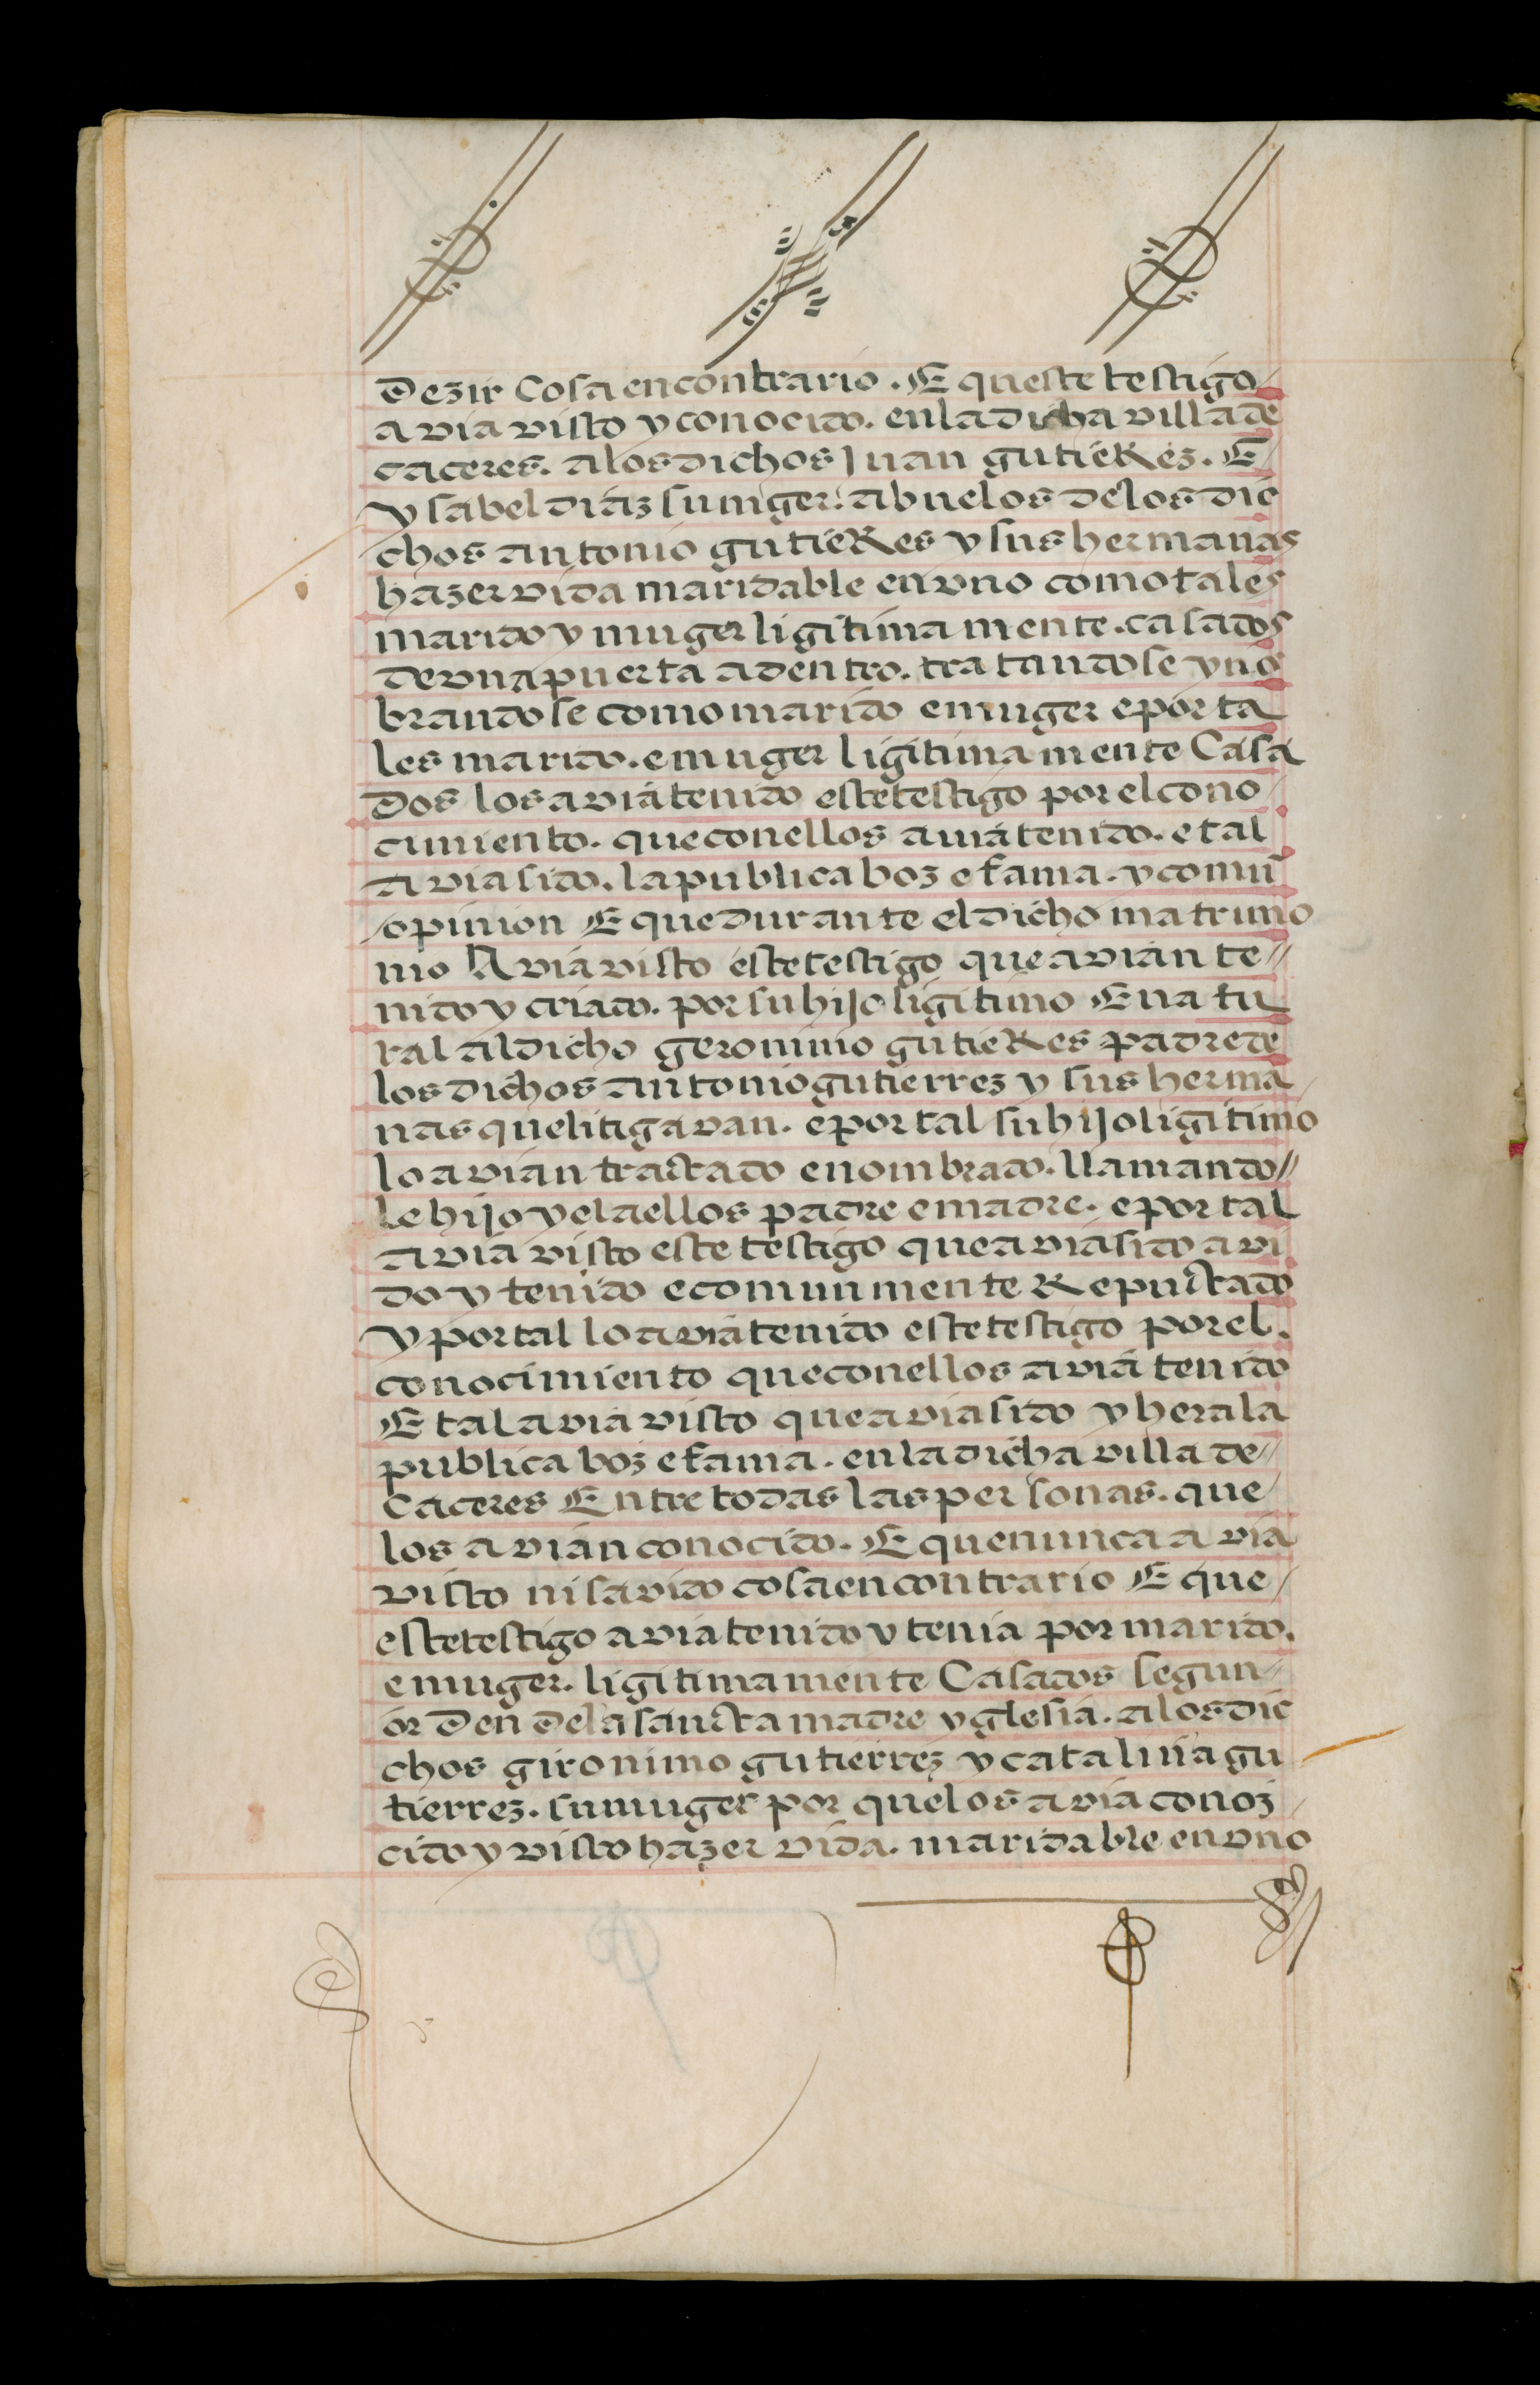 dezir Cosa en contrario. E queste testigo
avia visto y conocido. en la dicha villa de
caceres. a los dichos Juan gutieRez. E
ysabel diaz su muger. abuelos de los dic
chos antonio gutieRes y sus hermanas
hazer vida maridable en vno como tales
marido y muger ligitima mente. casados
de vna puerta adentro. tratandose y nō
brandose como marido e muger e por ta
les marido. e muger ligitima mente Casa
dos los avia tenido este testigo por el cono
cimiento. que con ellos avia tenido. e tal
avia sido. la publica boz e fama. y comū
opinion E que durante el dicho matrimo
nio Avia visto este testigo que avian te
nido y criado. por su hijo ligitimo E natu
ral al dicho geronimo gutieRes padre de
los dichos antonio gutierrez y sus herma
nas que litigavan. e por tal su hijo ligitimo
lo avian tractado e nombrado. llamando
le hijo y el a ellos padre e madre. e por tal
avia visto este testigo que avia sido avi
do y tenido e comunmente Reputado
y por tal lo avia tenido este testigo por el.
conocimiento que con ellos avia tenido
E tal avia visto que avia sido y hera la
publica boz e fama. en la dicha villa de
Caceres Entre todas las personas. que
los avian conocido. E que nunca avia
visto ni savido cosa en contrario E que
este testigo avia tenido y tenia por marido.
e muger. ligitima mente Casados segun
orden de la sancta madre yglesia. a los dic
chos gironimo gutierrez y catalina gu
tierrez. su muger por que los avia conoz
cido y visto hazer vida. maridable en vno